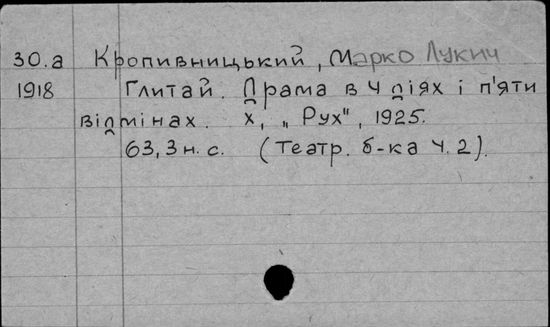 30.а Кропивницький, Марко Лукич
1918 Глитай. Драма в 4 діях і п'яти
відмінах. Х, „Рух", 1925.
63, 3 н. с. (Театр. б-ка Ч. 2).